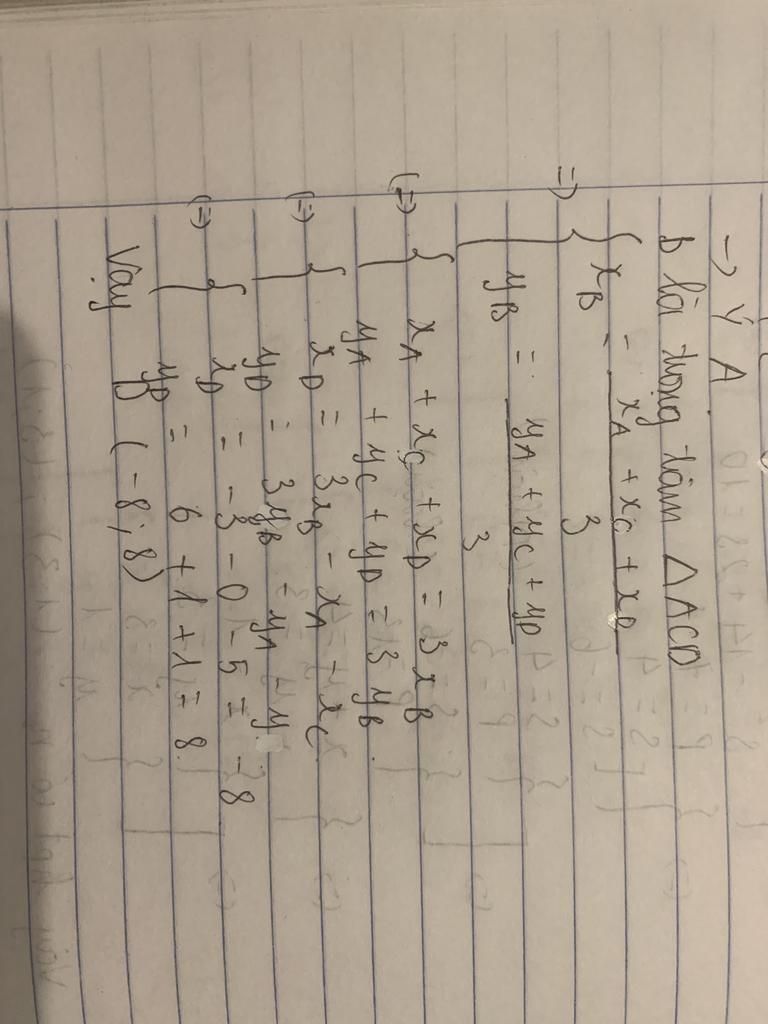 -> Ý A
B là trọng tâm ΔACD
=> { x_B = (x_A + x_C + x_D) / 3
y_B = (y_A + y_C + y_D) / 3
(=) { x_A + x_C + x_D = 3x_B
y_A + y_C + y_D = 3y_B
(=) { x_D = 3x_B - x_A - x_C
y_D = 3y_B - y_A - y
(=) { x_D = -3 - 0 - 5 = -8
y_D = 6 + 1 + 1 = 8
Vậy D (-8;8)